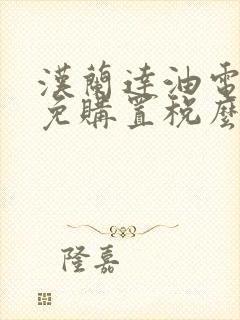 漢蘭達油電
免購置稅麼
隆嘉